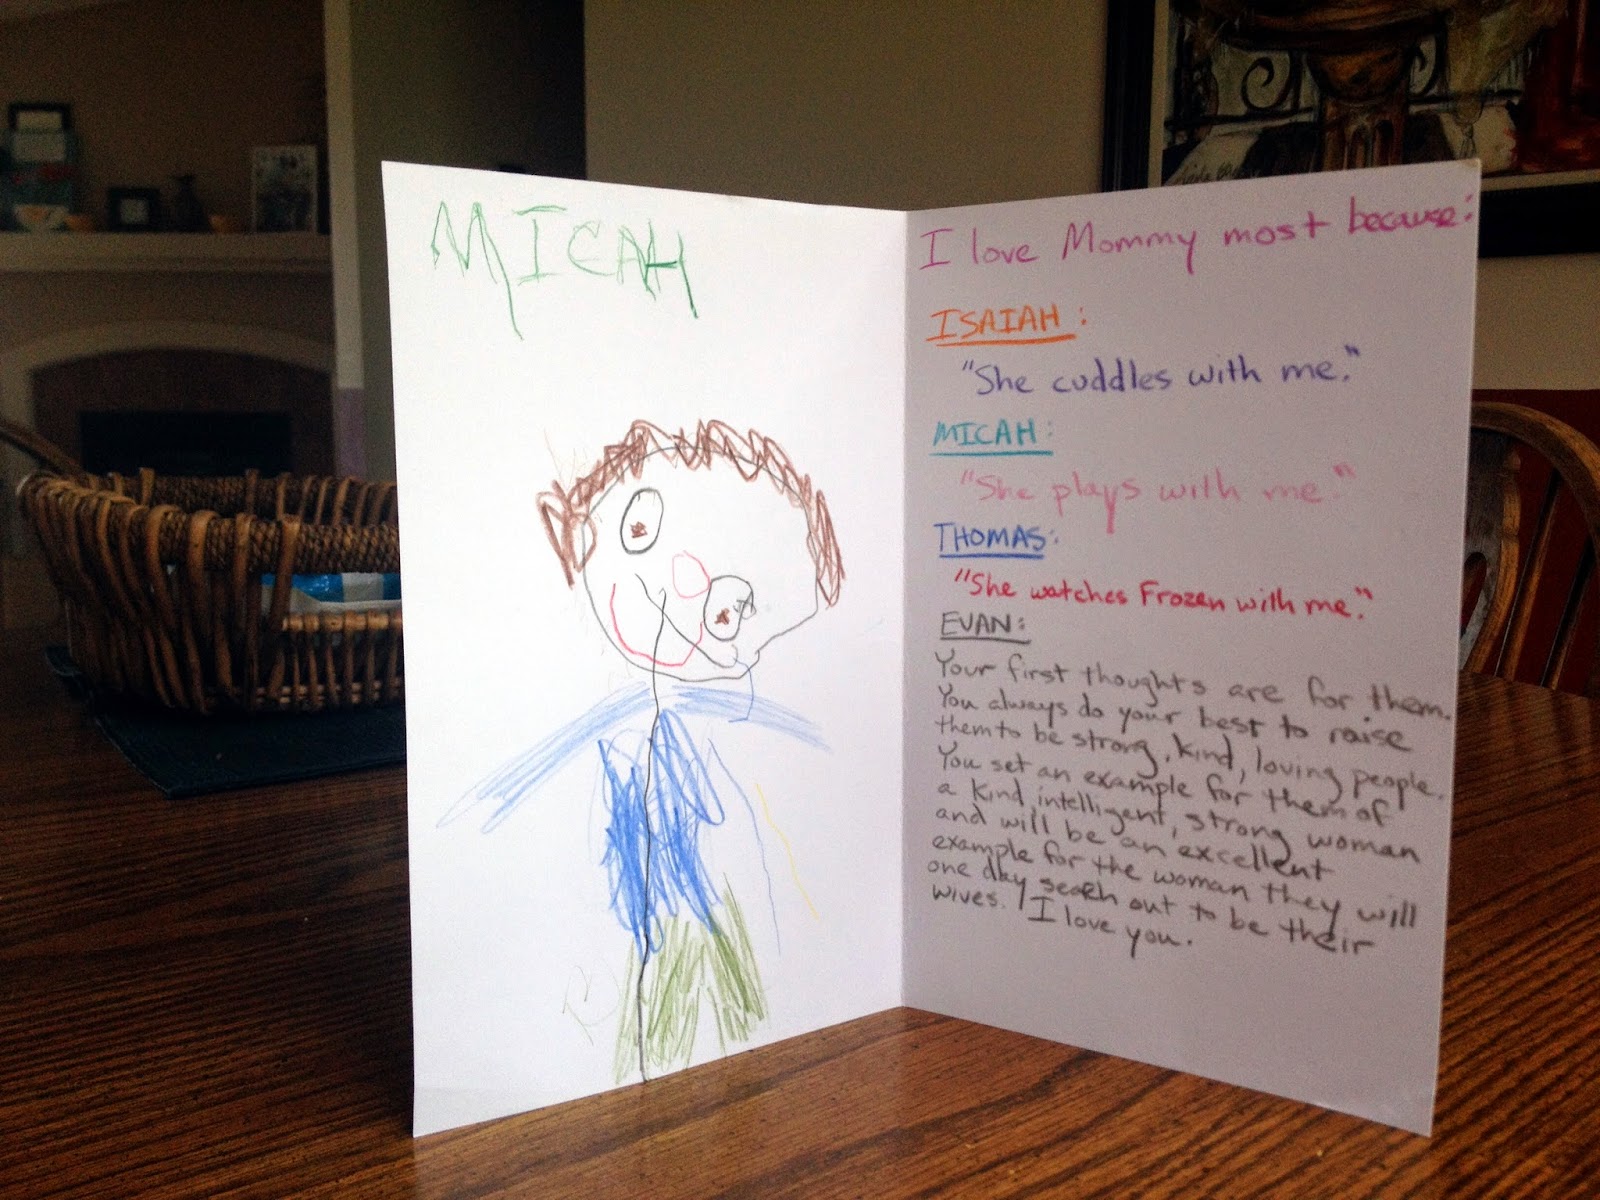 MICAH
I love Mommy most because:
ISAIAH:
"She cuddles with me."
MICAH:
"She plays with me"
THOMAS:
"She watches Frozen with me."
EVAN:
Your first thoughts are for them.
You always do your best to raise
them to be strong, kind, loving people.
You set an example for them of
a kind, intelligent, strong woman
and will be an excellent
example for the woman they will
one day search out to be their
wives. I love you.